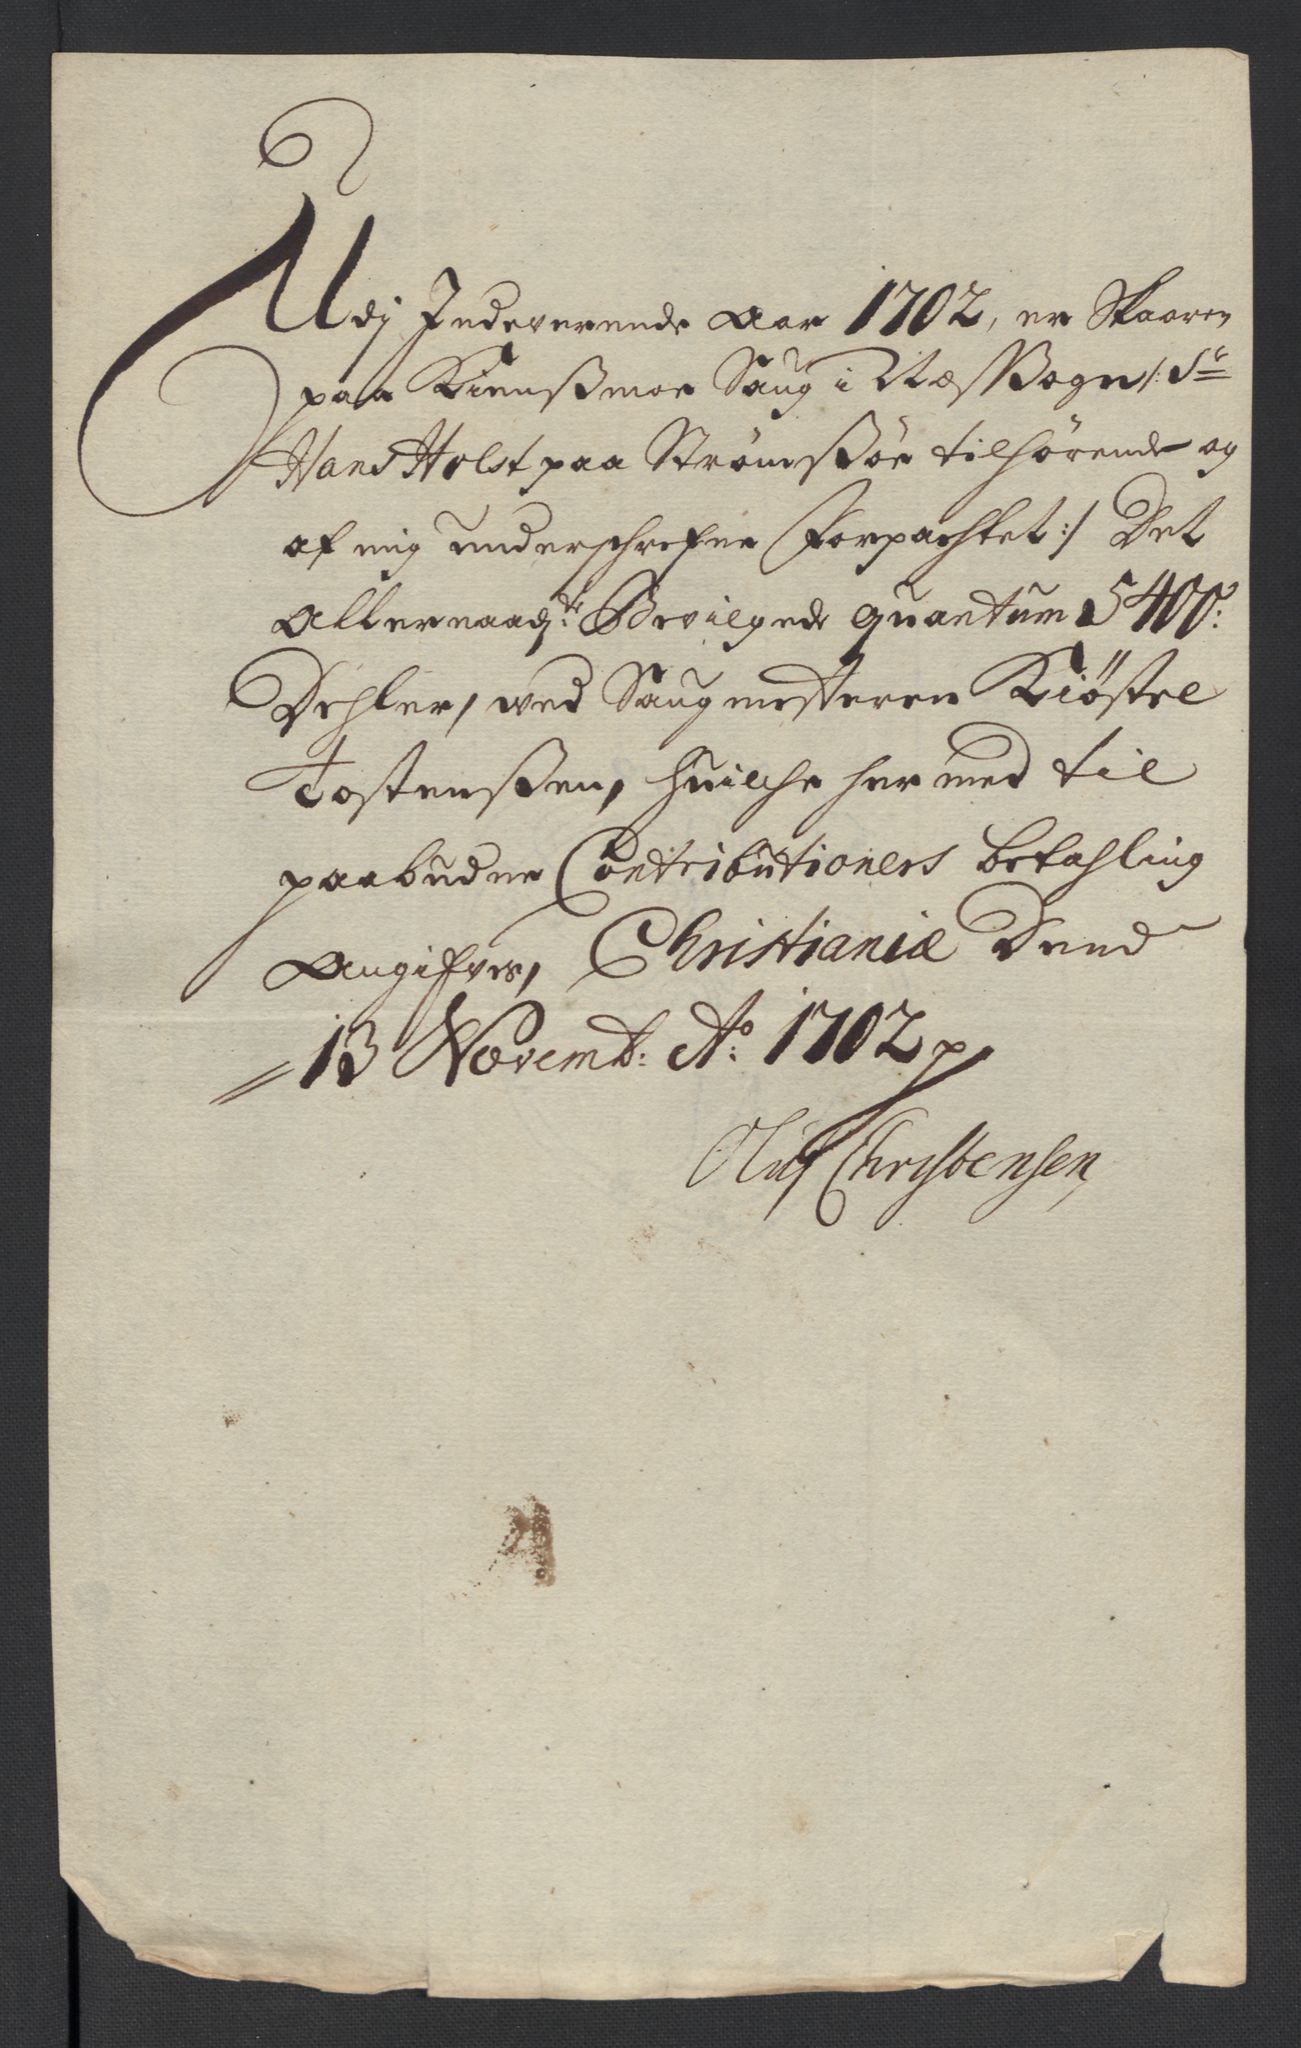 Udj Indeverende Aar 1702, er Skaaren
paa Kienßmoe Saug i Næs Sogn /: Sr
Hans Holst paa Strømsøe tilhørende og
af mig underschrefne Forpachtet :/ Det
Allernaadste Bevilgede quantum 5400:
Dehler, ved Saugmesteren Kiøstel
Tostenßen, huilche her med til
paabudne Contributioners betahling
Angifves, Christiania Dend
13 Novemb: Ao: 1702 p
Oluf Christensen